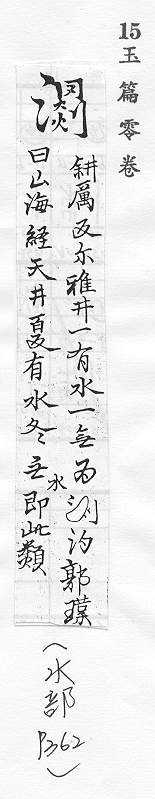 15 玉篇零卷
瀱
耕厲反尔雅井一有水一无为瀱汋郭璞
曰山海経天井夏有水冬无水即此類
(水部 P362)